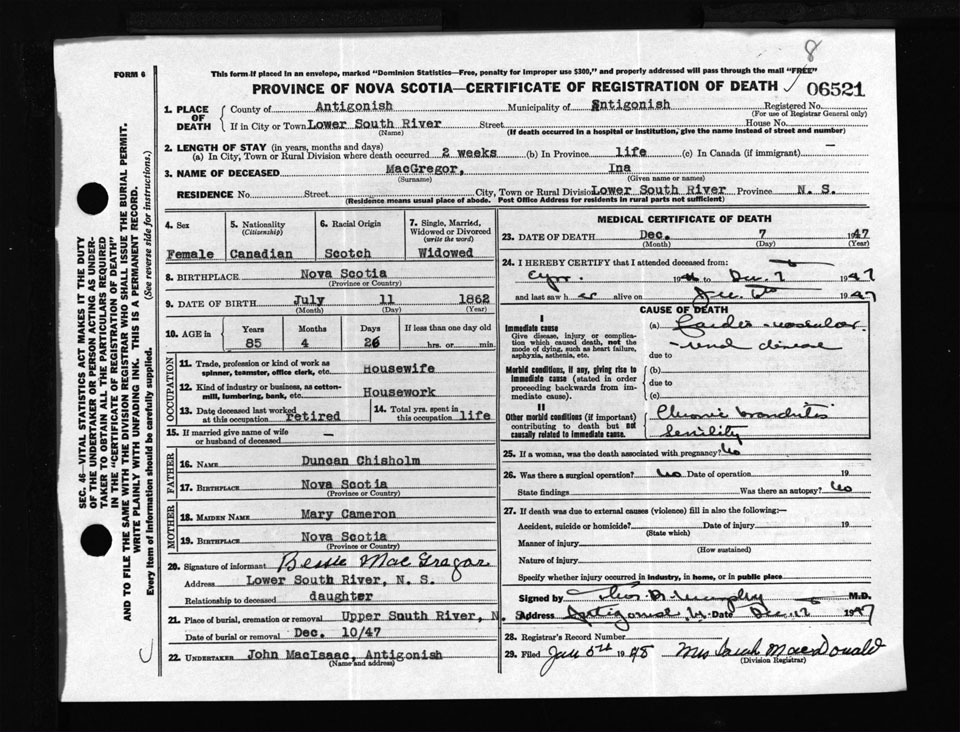 8
FORM 6
This form if placed in an envelope, marked "Dominion Statistics—Free, penalty for improper use $300," and properly addressed will pass through the mail "FREE"
PROVINCE OF NOVA SCOTIA—CERTIFICATE OF REGISTRATION OF DEATH
06521
SEC. 46—VITAL STATISTICS ACT MAKES IT THE DUTY
OF THE UNDERTAKER OR PERSON ACTING AS UNDER-
TAKER TO OBTAIN ALL THE PARTICULARS REQUIRED
IN THE "CERTIFICATE OF REGISTRATION OF DEATH"
AND TO FILE THE SAME WITH THE DIVISION REGISTRAR WHO SHALL ISSUE THE BURIAL PERMIT.
WRITE PLAINLY WITH UNFADING INK. THIS IS A PERMANENT RECORD.
Every item of information should be carefully supplied. (See reverse side for instructions.)
1. PLACE OF DEATH
County of Antigonish Municipality of Antigonish Registered No.
(For use of Registrar General only)
If in City or Town Lower South River Street House No.
(Name) (If death occurred in a hospital or institution, give the name instead of street and number)
2. LENGTH OF STAY (in years, months and days)
(a) In City, Town or Rural Division where death occurred 2 weeks (b) In Province life (c) In Canada (if immigrant) —
3. NAME OF DECEASED MacGregor, Ina
(Surname) (Given name or names)
RESIDENCE No. Street City, Town or Rural Division Lower South River Province N. S.
(Residence means usual place of abode. Post Office Address for residents in rural parts not sufficient)
4. Sex 5. Nationality (Citizenship) 6. Racial Origin 7. Single, Married, Widowed or Divorced (write the word)
Female Canadian Scotch Widowed
8. BIRTHPLACE Nova Scotia
(Province or Country)
9. DATE OF BIRTH July 11 1862
(Month) (Day) (Year)
10. AGE in Years Months Days If less than one day old
85 4 26 hrs. or min.
OCCUPATION
11. Trade, profession or kind of work as spinner, teamster, office clerk, etc. Housewife
12. Kind of industry or business, as cotton-mill, lumbering, bank, etc. Housework
13. Date deceased last worked at this occupation retired 14. Total yrs. spent in this occupation life
15. If married give name of wife or husband of deceased —
FATHER
16. NAME Duncan Chisholm
17. BIRTHPLACE Nova Scotia
(Province or Country)
MOTHER
18. MAIDEN NAME Mary Cameron
19. BIRTHPLACE Nova Scotia
(Province or Country)
20. Signature of informant Bessie MacGregor
Address Lower South River, N. S.
Relationship to deceased daughter
21. Place of burial, cremation or removal Upper South River, N. S.
Date of burial or removal Dec. 10/47
22. UNDERTAKER John MacIsaac, Antigonish
(Name and address)
MEDICAL CERTIFICATE OF DEATH
23. DATE OF DEATH Dec. 7 1947
(Month) (Day) (Year)
24. I HEREBY CERTIFY that I attended deceased from:
19 to Dec. 7 1947
and last saw her alive on Dec. 1947
CAUSE OF DEATH
I
Immediate cause
Give disease, injury or complication which caused death, not the mode of dying, such as heart failure, asphyxia, asthenia, etc.
(a) Cardio-vascular
renal disease
due to
Morbid conditions, if any, giving rise to immediate cause (stated in order proceeding backwards from immediate cause).
(b)
due to
(c)
II
Other morbid conditions (if important) contributing to death but not causally related to immediate cause.
Chronic bronchitis
Senility
25. If a woman, was the death associated with pregnancy? No
26. Was there a surgical operation? No Date of operation 19
State findings Was there an autopsy? No
27. If death was due to external causes (violence) fill in also the following:—
Accident, suicide or homicide? Date of injury 19
(State which)
Manner of injury
(How sustained)
Nature of injury
Specify whether injury occurred in industry, in home, or in public place
Signed by Murphy M.D.
Address Antigonish Date Dec 12 1947
28. Registrar's Record Number
29. Filed Jan 5th 1948 Mrs Sarah MacDonald
(Division Registrar)